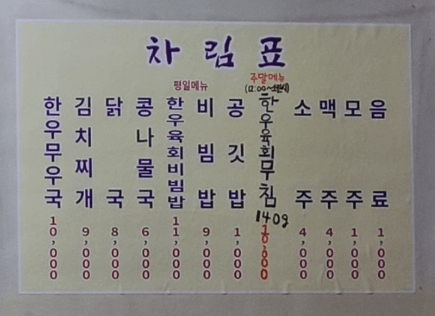 차림표
평일메뉴
주말메뉴
한우무우국 10,000
김치찌개 9,000
닭국 8,000
콩나물국 6,000
한우육회비빔밥 11,000
비빔밥 9,000
공깃밥 1,000
한우육회무침 140g
소주 4,000
맥주 4,000
모주 1,000
음료 1,000